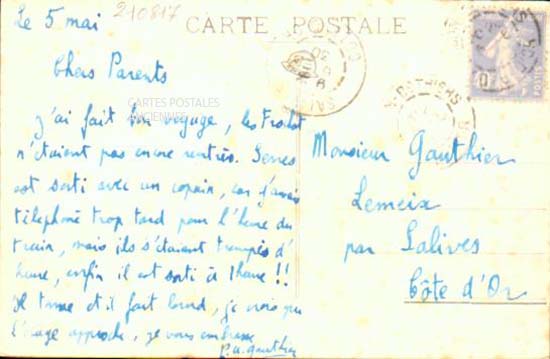 Le 5 mai
210817
CARTE POSTALE
Chers Parents
CARTES POSTALES
ANCIENNES
J'ai fait bon voyage, les
n'étaient pas encore rentrés.
est sorti avec un copain, car j'avais
téléphoné trop tard pour l'heure du
train, mais ils s'étaient trompés d'
heure, enfin il est sorti à 1 heure !!
Il tonne et il fait lourd, je crois que
l'orage approche, je vous embrasse
Monsieur Gauthier
Lemeix
par Salives
Côte d'Or